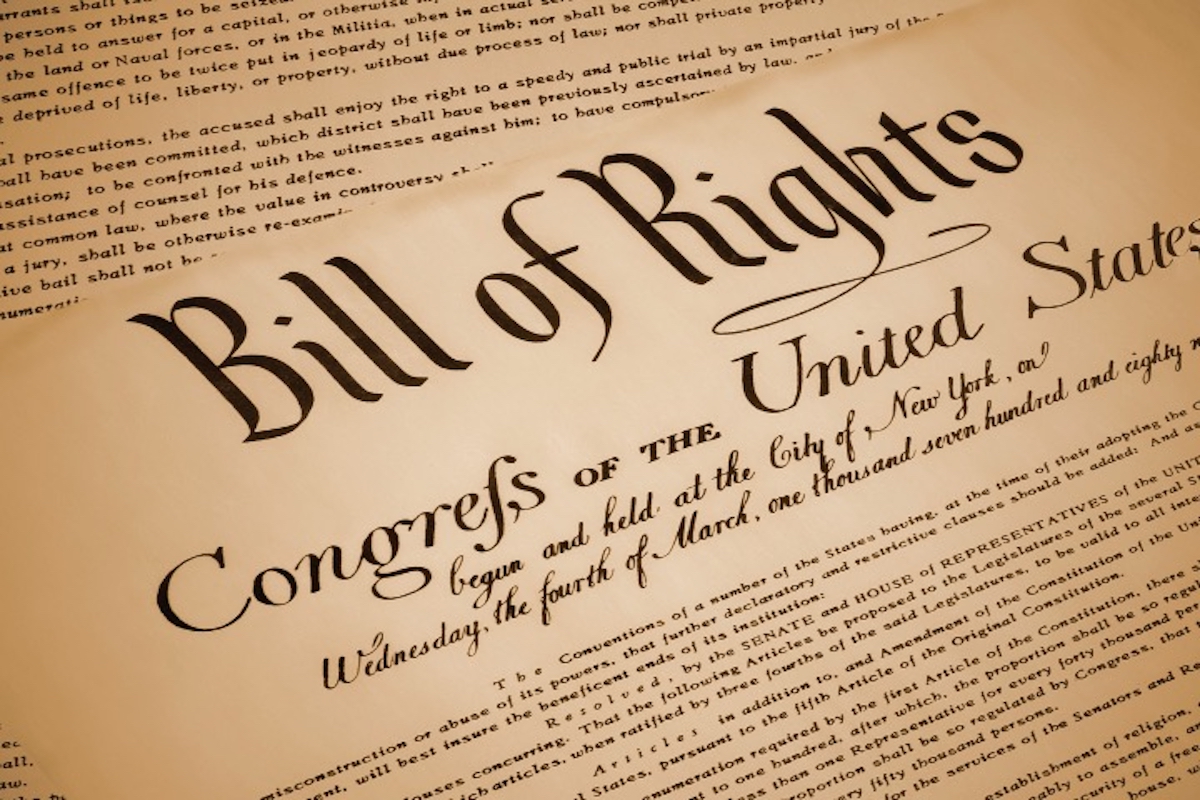 arrants shall
persons or things to be seized.
be held to answer for a capital, or otherwise
the land or Naval forces, or in the Militia, when in actual
same offence to be twice put in jeopardy of life or limb; nor shall be
deprived of life, liberty, or property, without due process of law; nor shall private property
al prosecutions, the accused shall enjoy the right to a speedy and public trial by an impartial jury of the
hall have been committed, which district shall have been previously ascertained by law, an
sation; to be confronted with the witnesses against him; to have compulsor
assistance of counsel for his defence.
at common law, where the value in controversy shall
a jury, shall be otherwise re-exami
ive bail shall not be
numerati
Bill of Rights
Congreſs OF THE United States
begun and held at the City of New York, on
Wednesday, the fourth of March, one thousand seven hundred and eighty n
The Conventions of a number of the States having, at the time of their adopting the C
misconstruction or abuse of its powers, that further declaratory and restrictive clauses should be added: And as
ent, will best insure the beneficent ends of its institution:
Resolved, by the SENATE and HOUSE of REPRESENTATIVES of the UNIT
ouses concurring. That the following Articles be proposed to the Legislatures of the several S
ch articles, when ratified by three fourths of the said Legislatures, to be valid to all inte
Articles in addition to, and Amendment of the Constitution of the Uni
States, pursuant to the fifth Article of the Original Constitution.
numeration required by the first Article of the Constitution, there s
t to one hundred, after which, the proportion shall be so regu
less than one Representative for every forty thousand per
proportion shall be so regulated by Congress, that
ery fifty thousand persons.
for the services of the Senators and Re
establishment of religion,
ably to assemble, a
curity of a free
house, w
all.
aw.